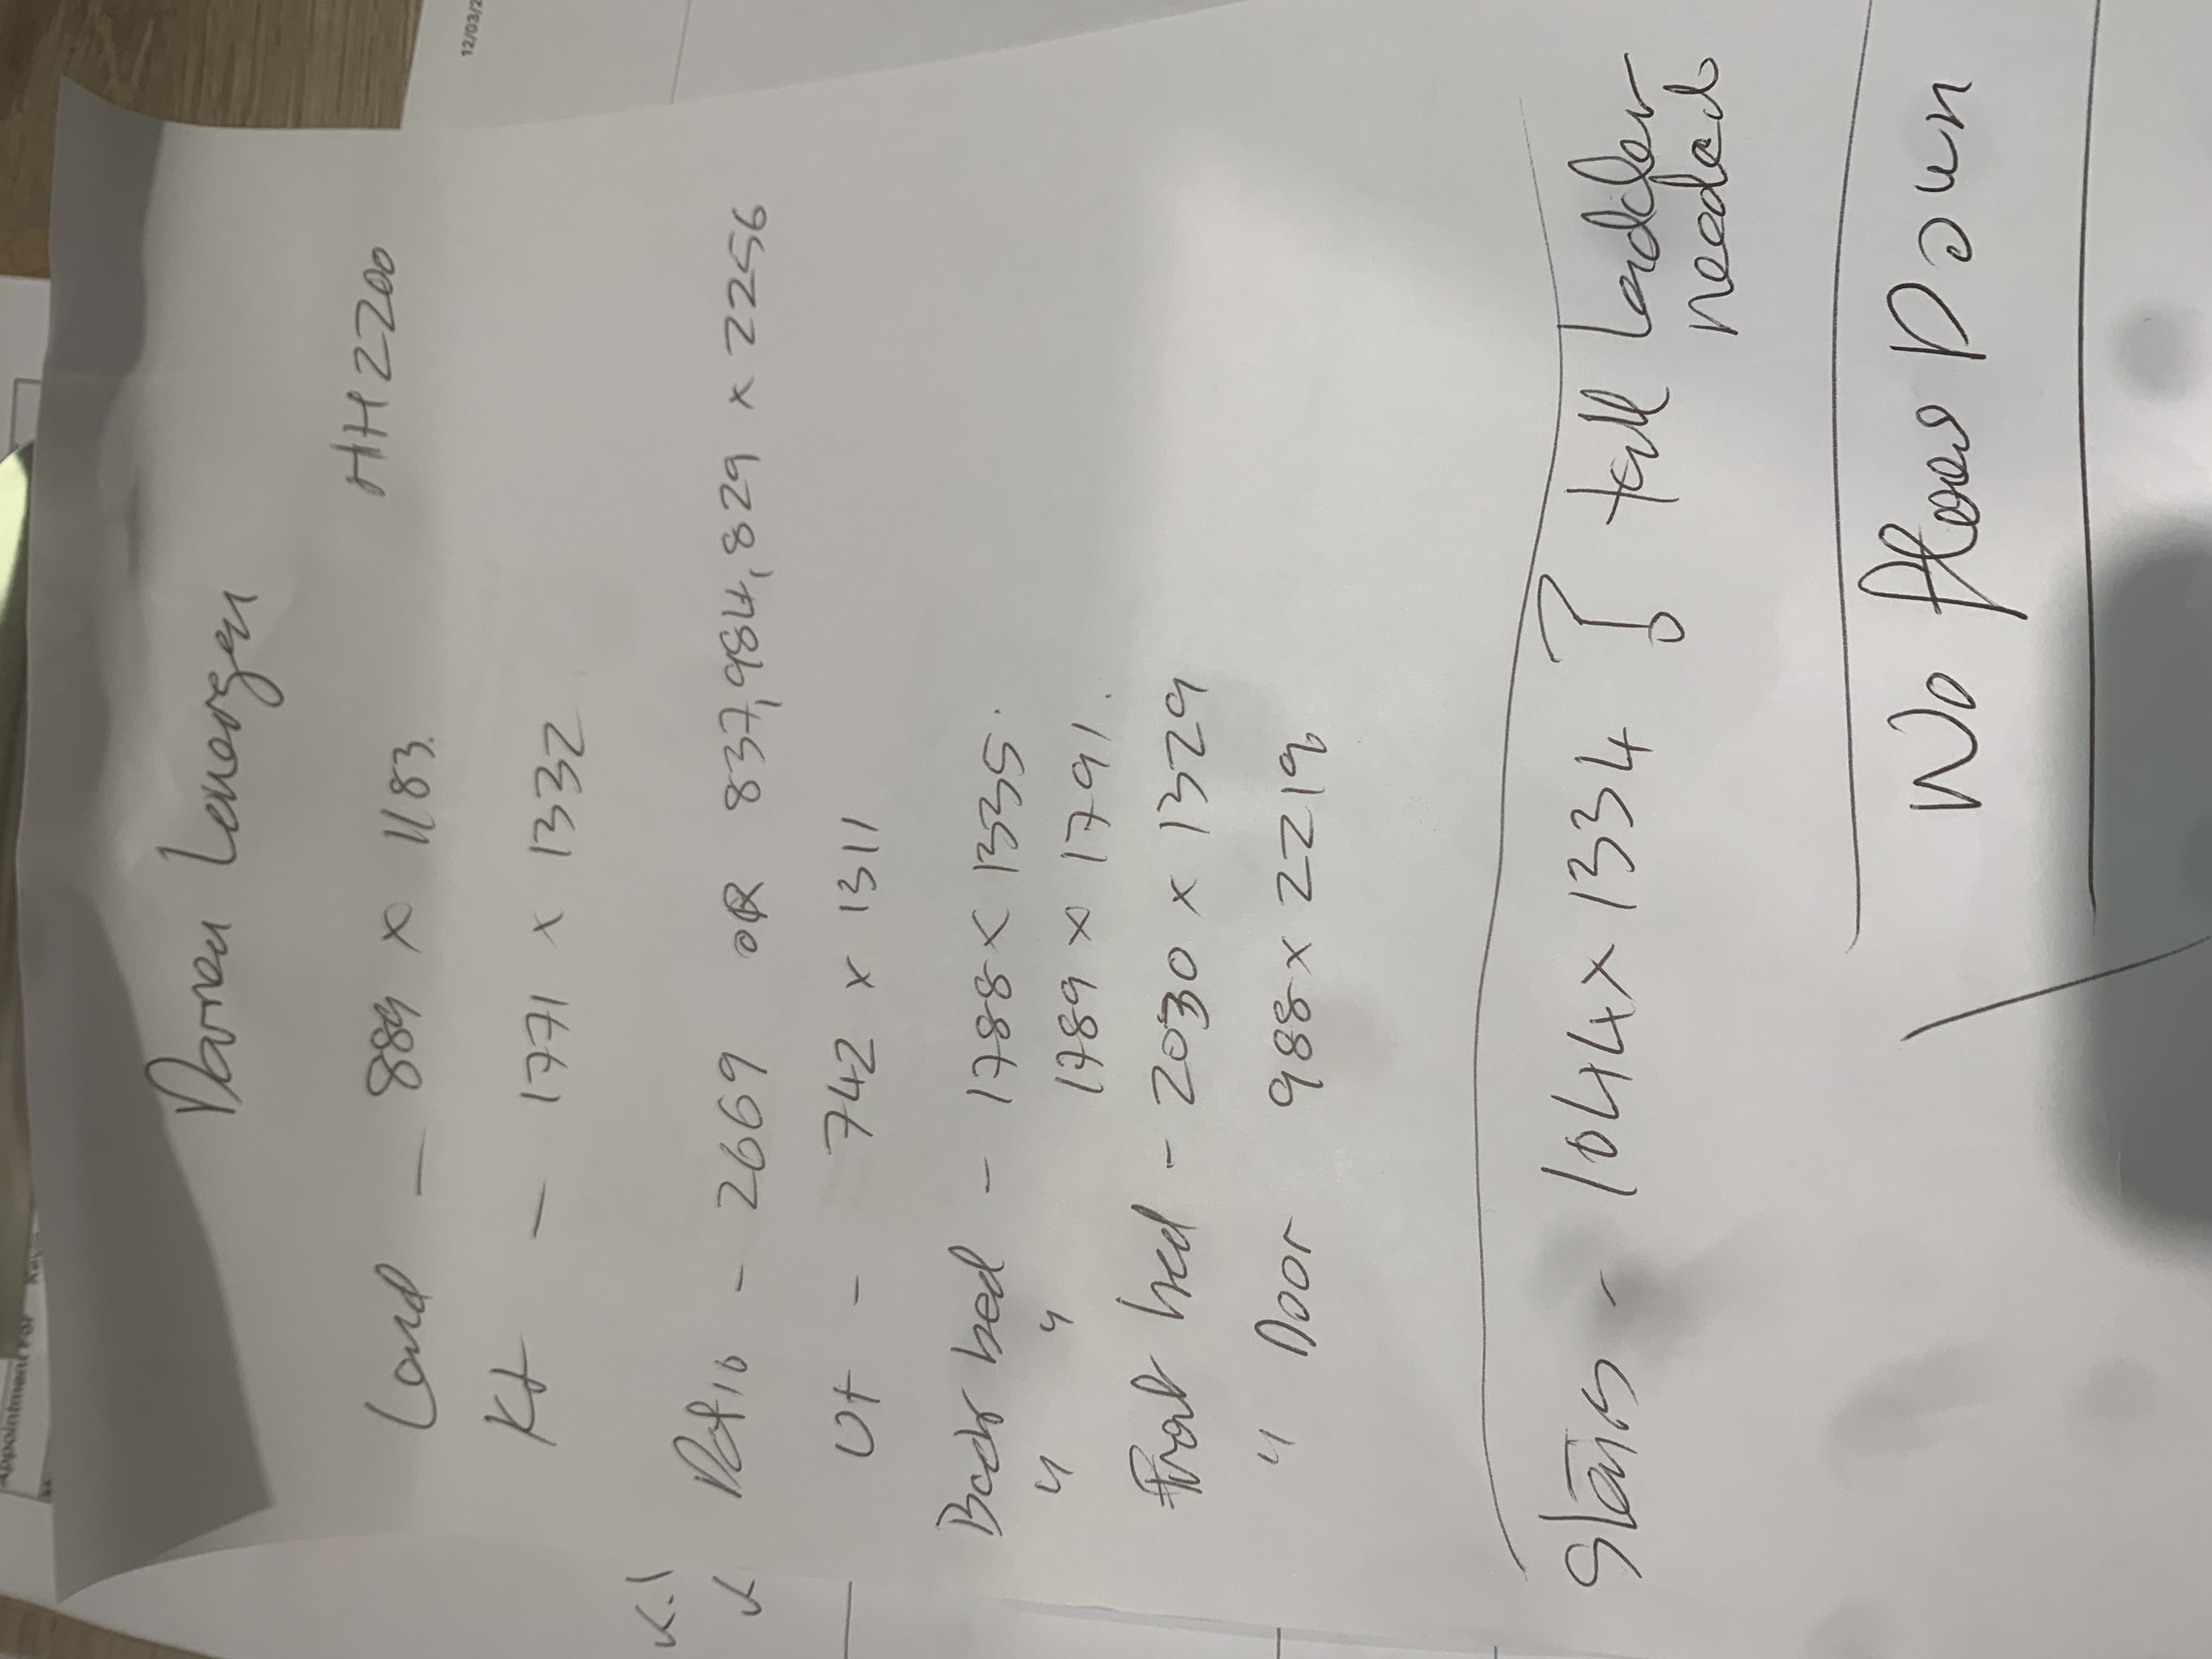 Darren Lenorgen
HH2200
Land - 889 x 1183.
Kt - 1771 x 1332
Patio - 2669 OR 837,984,829 x 2256
Ut - 742 x 1311
Back bed - 1788 x 1335.
" " 1789 x 1791.
Front bed - 2030 x 1329
" Door 988 x 2219
Stairs - 1044 x 1334 ? tall Ladder
needed
No floors Down
12/03/2
Appointment For